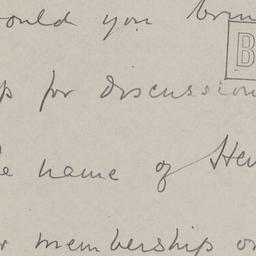 would you bring
B
up for discussion
the name of Hen
for membership on